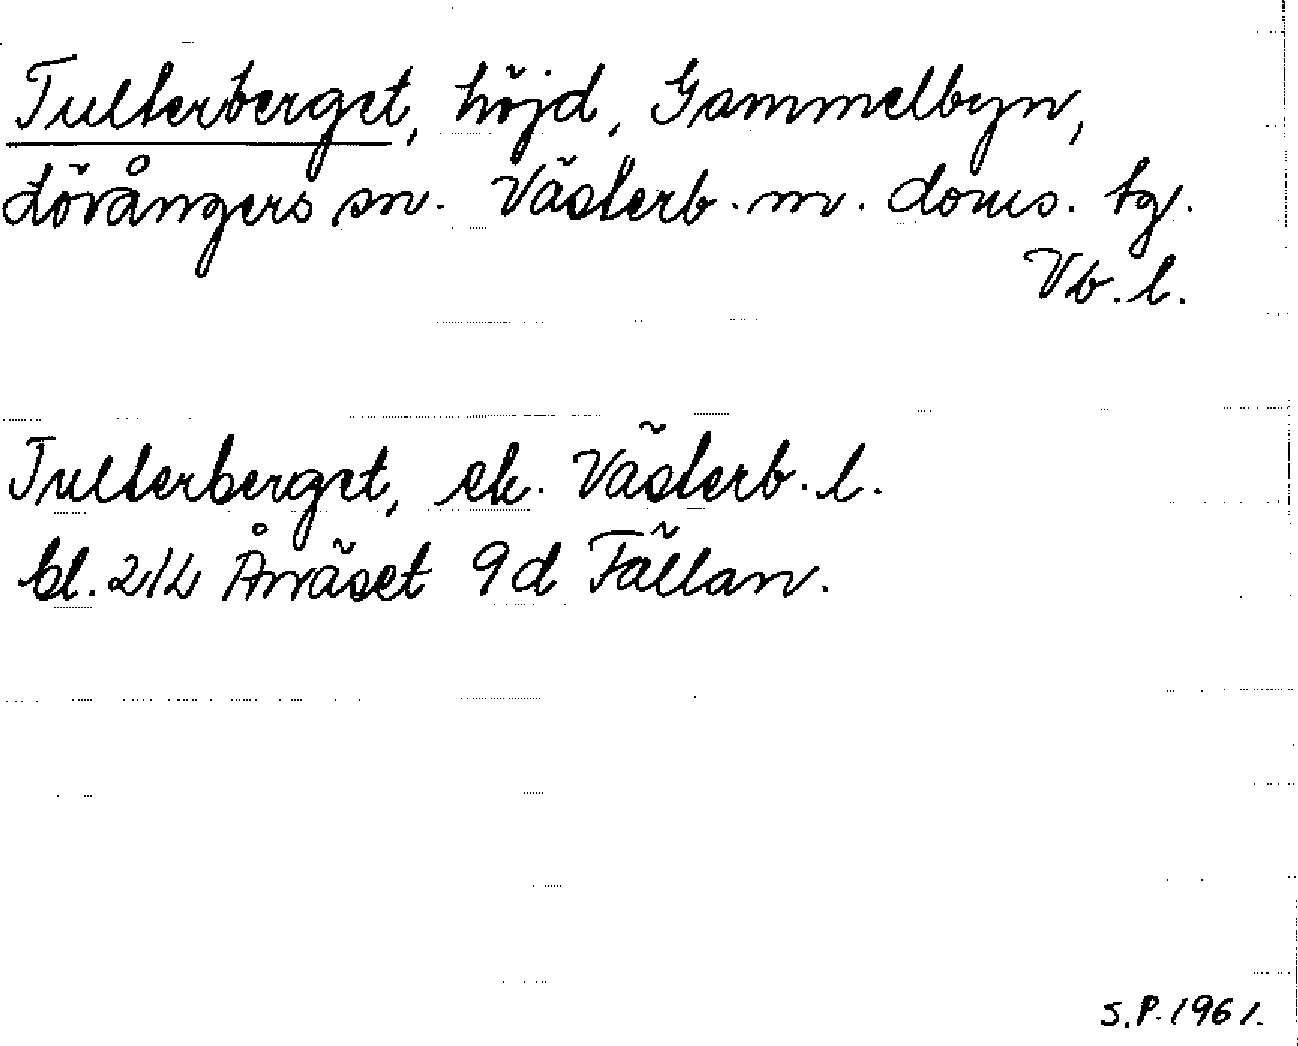 Tulterberget, höjd, Gammelbyn,
Lövångers sn. Västerb. n. doms. tg.
Vb. l.
Tulterberget, ek. Västerb. l.
bl. 21L Ånäset 9d Fällan.
S.P. 1961.